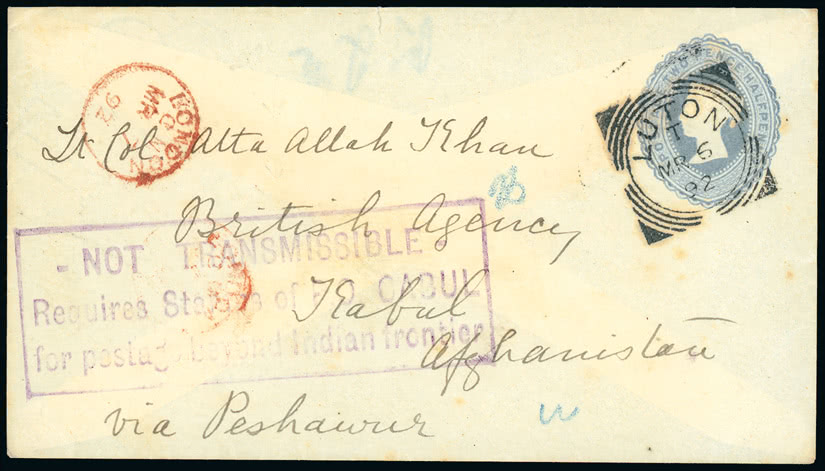 TWO PENCE HALFPENNY
LUTON
T
MR 6
92
LONDON
MR
92
Lt Col. Atta Allah Khan
British Agency
Kabul
Afghanistan
via Peshawur
- NOT TRANSMISSIBLE -
Requires Stamps of P.O. CABUL
for postage beyond Indian frontier